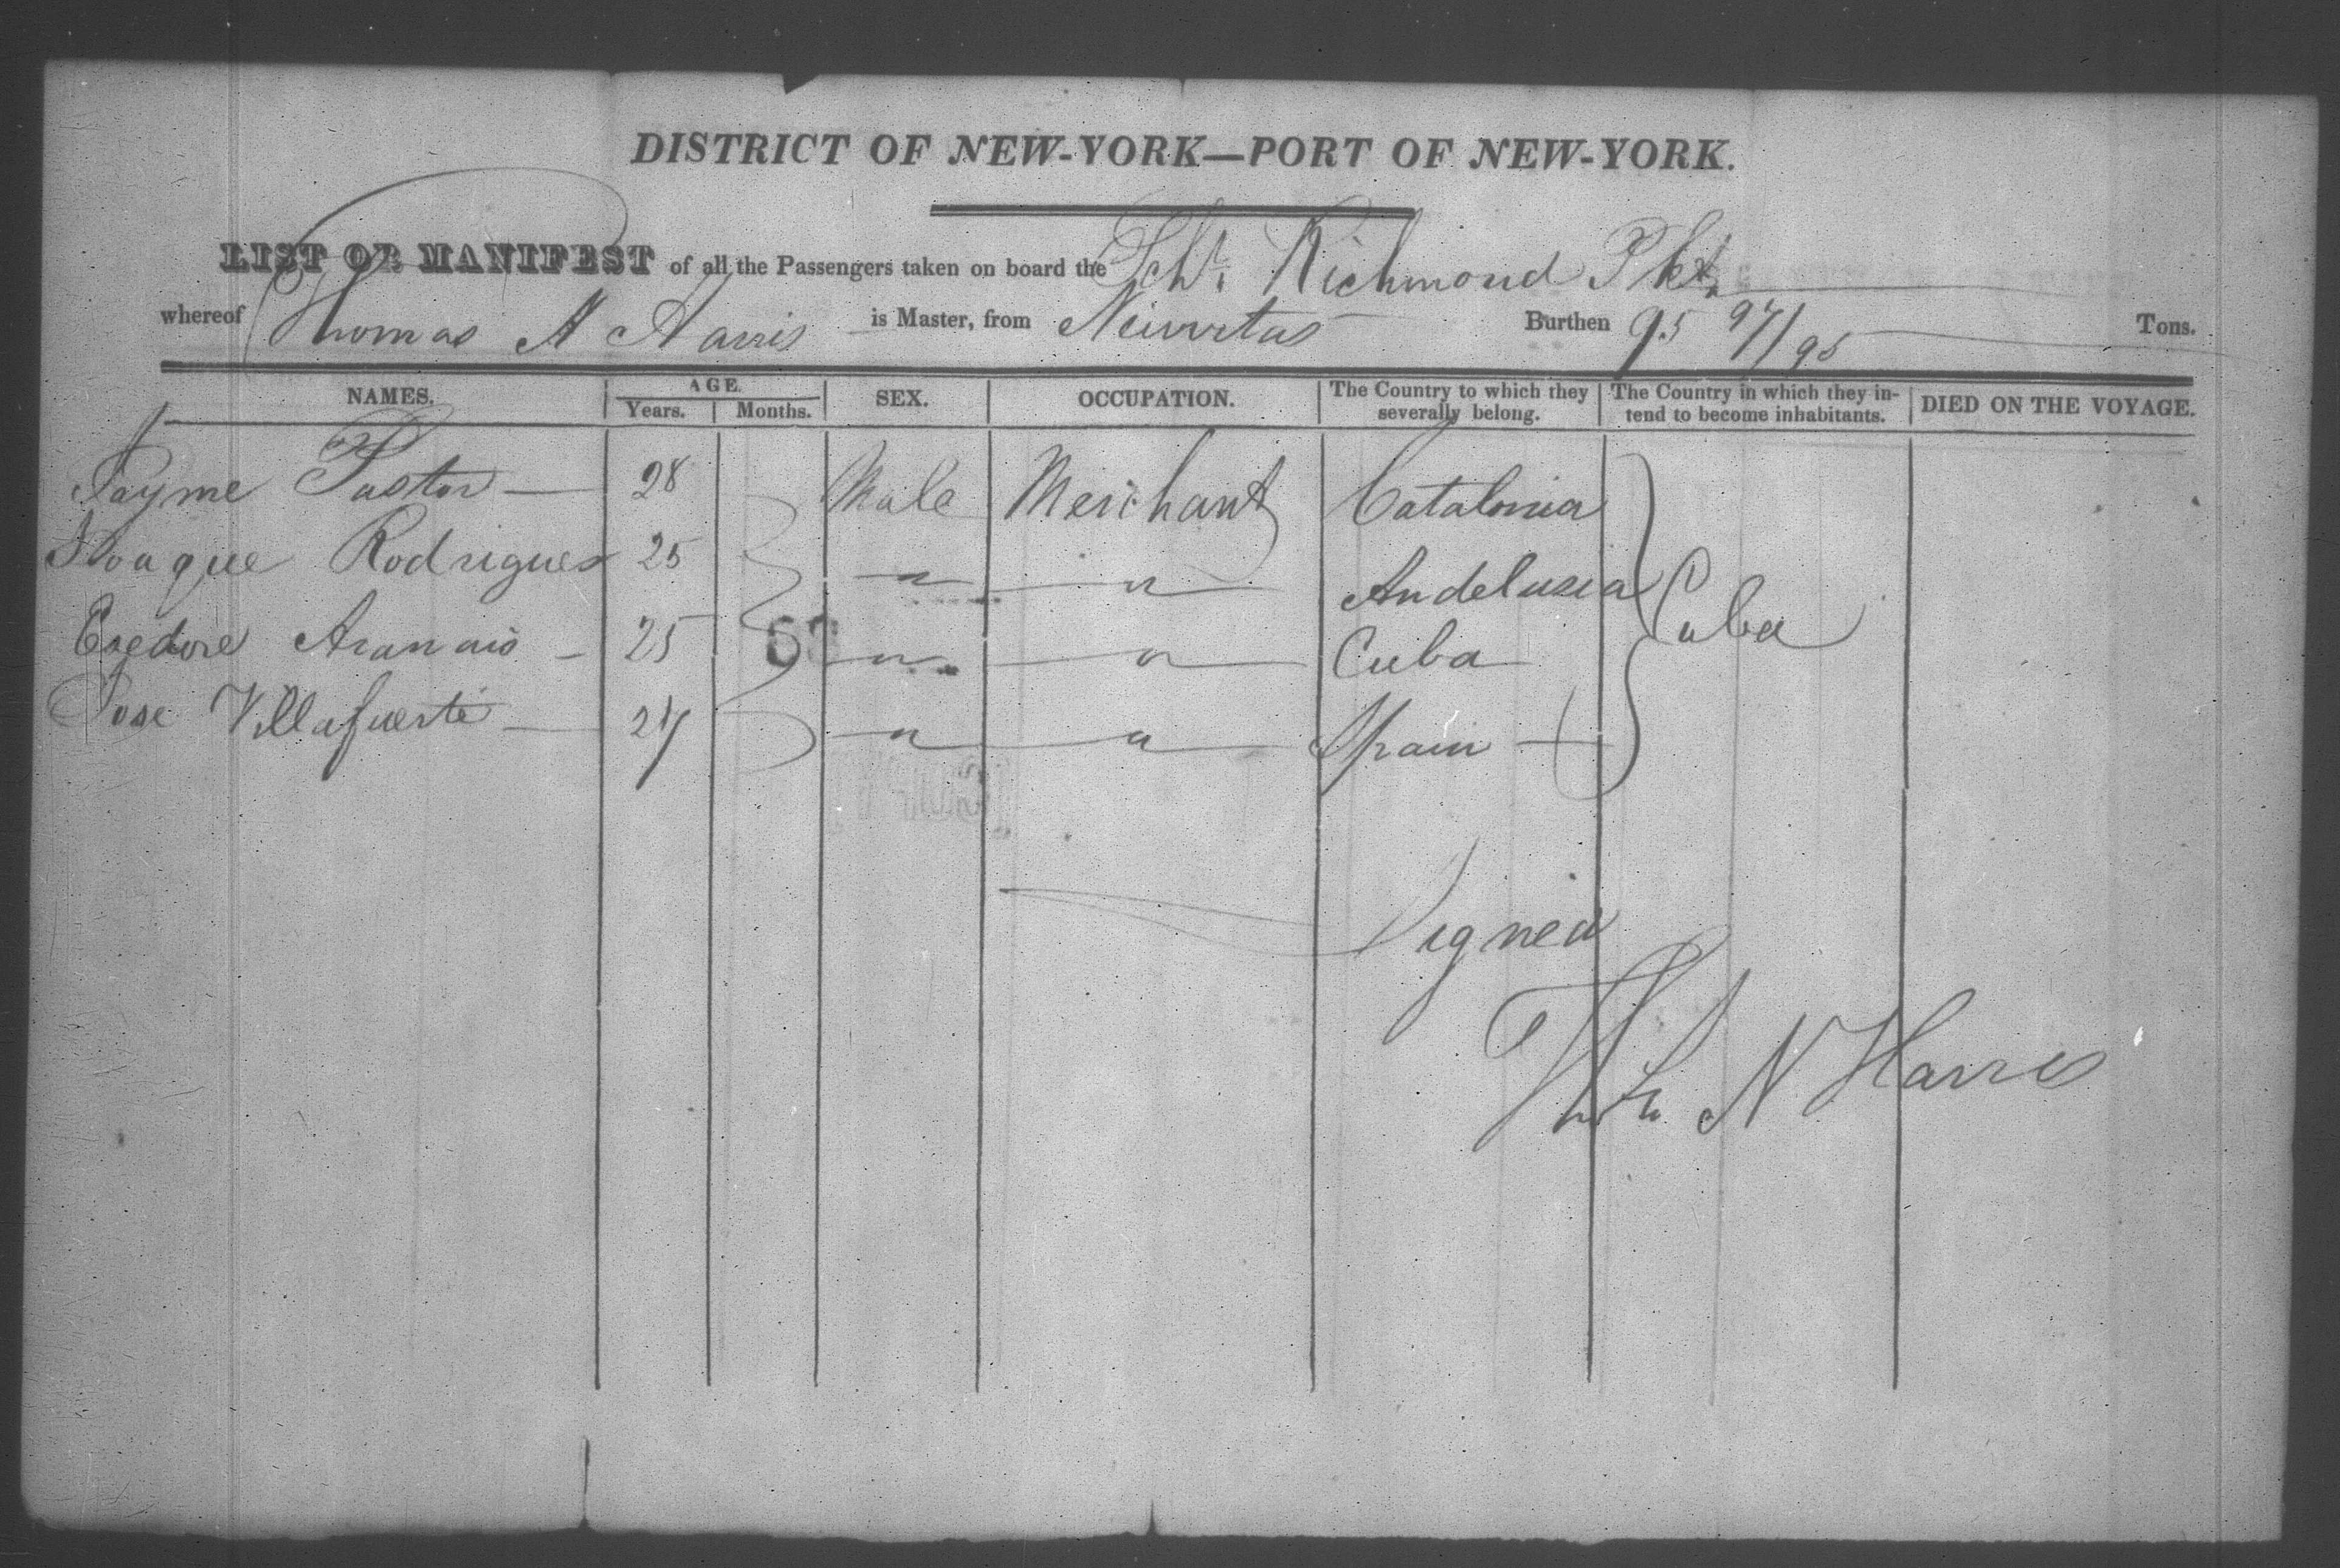 DISTRICT OF NEW-YORK—PORT OF NEW-YORK.
LIST OR MANIFEST of all the Passengers taken on board the Schr. Richmond Pkt.
whereof Thomas N Harris is Master, from Neuvitas Burthen 95 94/95 Tons.
NAMES. AGE. Years. Months. SEX. OCCUPATION. The Country to which they severally belong. The Country in which they intend to become inhabitants. DIED ON THE VOYAGE.
Jayme Pastor 28 Male Merchant Catalonia
Rodrigues 25 " " Andelusia Cuba
Esedore Aranaio 25 " " Cuba
Jose Villafuerte 24 " " Spain
Signed
Thos N Harris